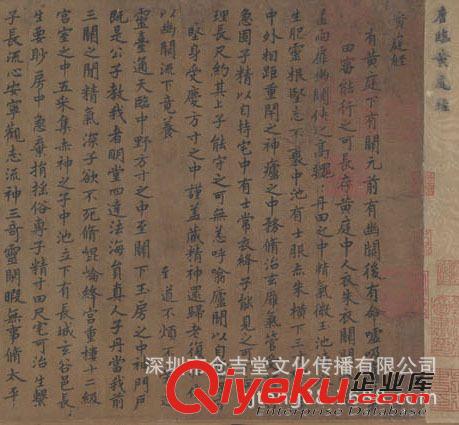 唐臨黃庭經
黃庭經
有黃庭下有關元前有幽闕後有命噓
田審能行之可長存黃庭中人衣朱衣關
蓋兩扉幽闕俠之高巍丹田之中精氣微玉池
生肥靈根堅志不衰中池有士服赤朱橫下三
中外相距重閉之神廬之中務脩治玄膺氣管
急固子精以自持宅中有士常衣絳子能見之
理長尺約其上子能守之可無恙呼噏廬間以
堅身受慶方寸之中謹蓋藏精神還歸老復
以幽闕流下竟養 至道不煩
靈臺通天臨中野方寸之中至關下玉房之中神門戶
既是公子教我者明堂四達法海員真人子丹當我前
三關之間精氣深子欲不死脩崐崘絳宮重樓十二級
宮室之中五采集赤神之子中池立下有長城玄谷邑長
生要眇房中急棄捐搖俗專子精寸田尺宅可治生繫
子長流心安寧觀志流神三奇靈閑暇無事脩太平
深圳市仓吉堂文化传播有限公司
Qiyeku.com 企业库
Enterprise Database